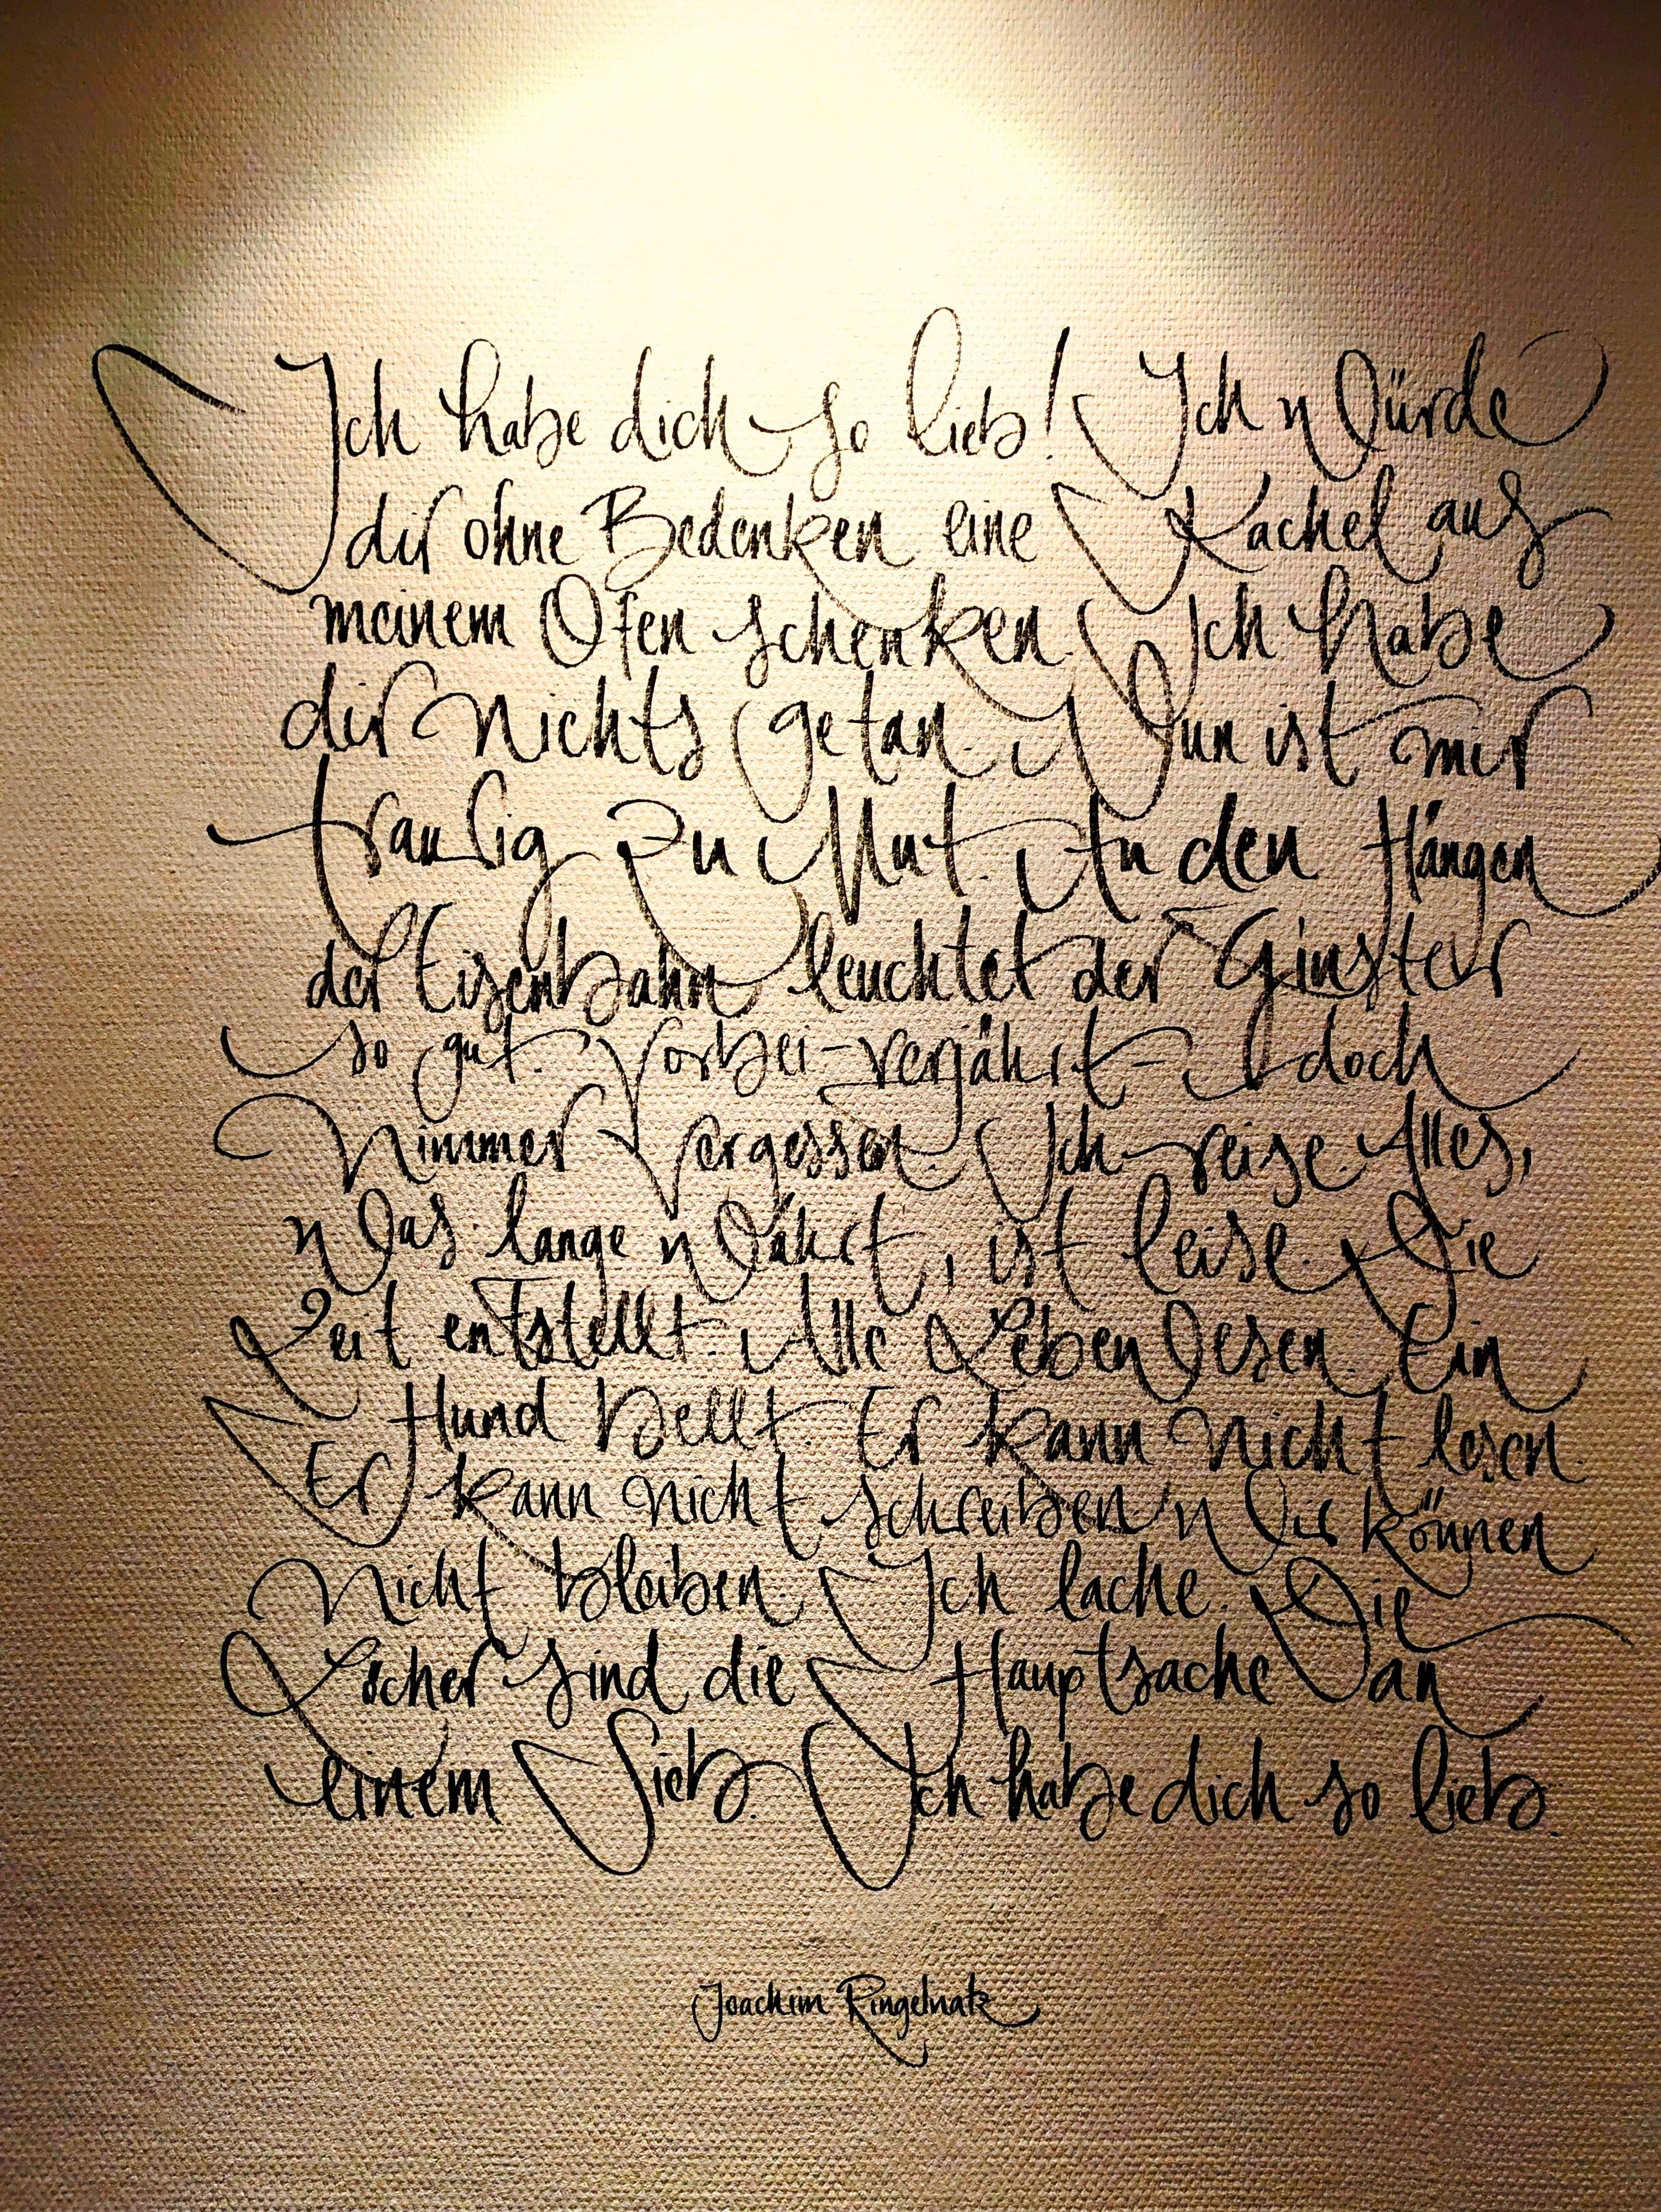 Ich habe dich so lieb! Ich würde
dir ohne Bedenken eine Kachel aus
meinem Ofen schenken. Ich habe
dir nichts getan. Nun ist mir
traurig zu Mut. An den Hängen
der Eisenbahn leuchtet der Ginster
so gut. Vorbei – verjährt – doch
Nimmer Vergessen. Ich reise. Alles,
was lange währt, ist leise. Die
Zeit entstellt. Alle Lebewesen. Ein
Hund bellt. Er kann nicht lesen.
Er kann nicht schreiben. Wir können
Nicht bleiben. Ich lache. Die
Löcher sind die Hauptsache an
einem Sieb. Ich habe dich so lieb.
Joachim Ringelnatz